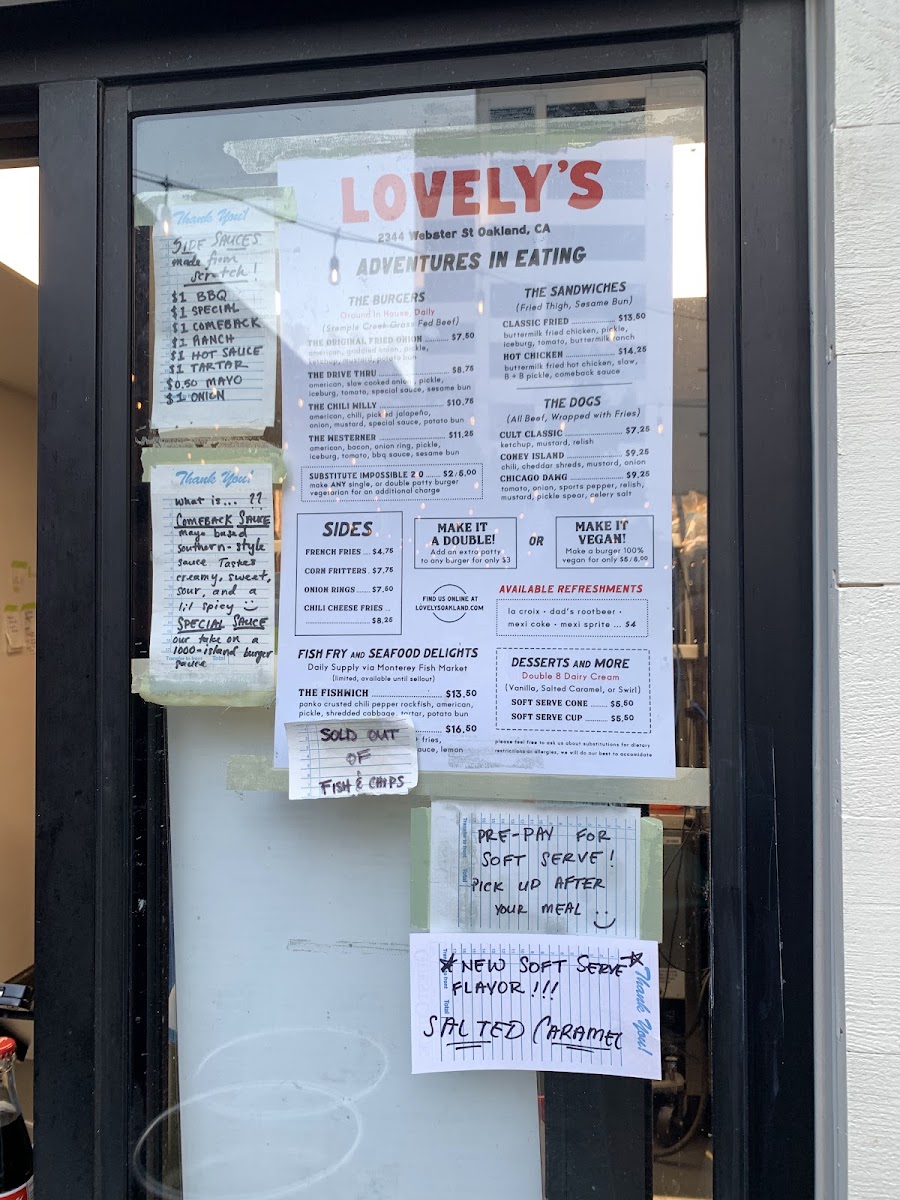 LOVELY'S
2344 Webster St Oakland, CA
ADVENTURES IN EATING
THE BURGERS
Ground In House, Daily
(Stemple Creek Grass Fed Beef)
THE ORIGINAL FRIED ONION ...... $7,50
american, griddled onion, pickle,
ketchup, mustard, potato bun
THE DRIVE THRU ...... $8,75
american, slow cooked onion, pickle,
iceburg, tomato, special sauce, sesame bun
THE CHILI WILLY ...... $10,75
american, chili, pickled jalapeño,
onion, mustard, special sauce, potato bun
THE WESTERNER ...... $11,25
american, bacon, onion ring, pickle,
iceburg, tomato, bbq sauce, sesame bun
SUBSTITUTE IMPOSSIBLE 2.0 ...... $2/5,00
make ANY single, or double patty burger
vegetarian for an additional charge
THE SANDWICHES
(Fried Thigh, Sesame Bun)
CLASSIC FRIED ...... $13,50
buttermilk fried chicken, pickle,
iceburg, tomato, buttermilk ranch
HOT CHICKEN ...... $14,25
buttermilk fried hot chicken, slaw,
B + B pickle, comeback sauce
THE DOGS
(All Beef, Wrapped with Fries)
CULT CLASSIC ...... $7,25
ketchup, mustard, relish
CONEY ISLAND ...... $9,25
chili, cheddar shreds, mustard, onion
CHICAGO DAWG ...... $9,25
tomato, onion, sports pepper, relish,
mustard, pickle spear, celery salt
SIDES
FRENCH FRIES ... $4,75
CORN FRITTERS . $7,75
ONION RINGS ...... $7,50
CHILI CHEESE FRIES ...
...... $8,25
MAKE IT
A DOUBLE!
Add an extra patty
to any burger for only $3
OR
MAKE IT
VEGAN!
Make a burger 100%
vegan for only $5/8,00
FIND US ONLINE AT
LOVELYSOAKLAND.COM
AVAILABLE REFRESHMENTS
la croix • dad's rootbeer •
mexi coke • mexi sprite ... $4
FISH FRY AND SEAFOOD DELIGHTS
Daily Supply via Monterey Fish Market
(limited, available until sellout)
THE FISHWICH ...... $13,50
panko crusted chili pepper rockfish, american,
pickle, shredded cabbage, tartar, potato bun
...... $16,50
fries,
lemon
DESSERTS AND MORE
Double 8 Dairy Cream
(Vanilla, Salted Caramel, or Swirl)
SOFT SERVE CONE ...... $5,50
SOFT SERVE CUP ...... $5,50
please feel free to ask us about substitutions for dietary
restrictions or allergies, we will do our best to accomidate
Thank You!
SIDE SAUCES
made from
scratch!
$1 BBQ
$1 SPECIAL
$1 COMEBACK
$1 RANCH
$1 HOT SAUCE
$1 TARTAR
$0.50 MAYO
$1 ONION
Thank You!
What is... ??
COMEBACK SAUCE
mayo based
southern-style
sauce Tastes
creamy, sweet,
sour, and a
lil spicy
SPECIAL SAUCE
our take on a
1000-island burger
sauce
SOLD OUT
OF
FISH & CHIPS
PRE-PAY FOR
SOFT SERVE!
PICK UP AFTER
YOUR MEAL
NEW SOFT SERVE
FLAVOR!!!
SALTED CARAMEL
Thank You!